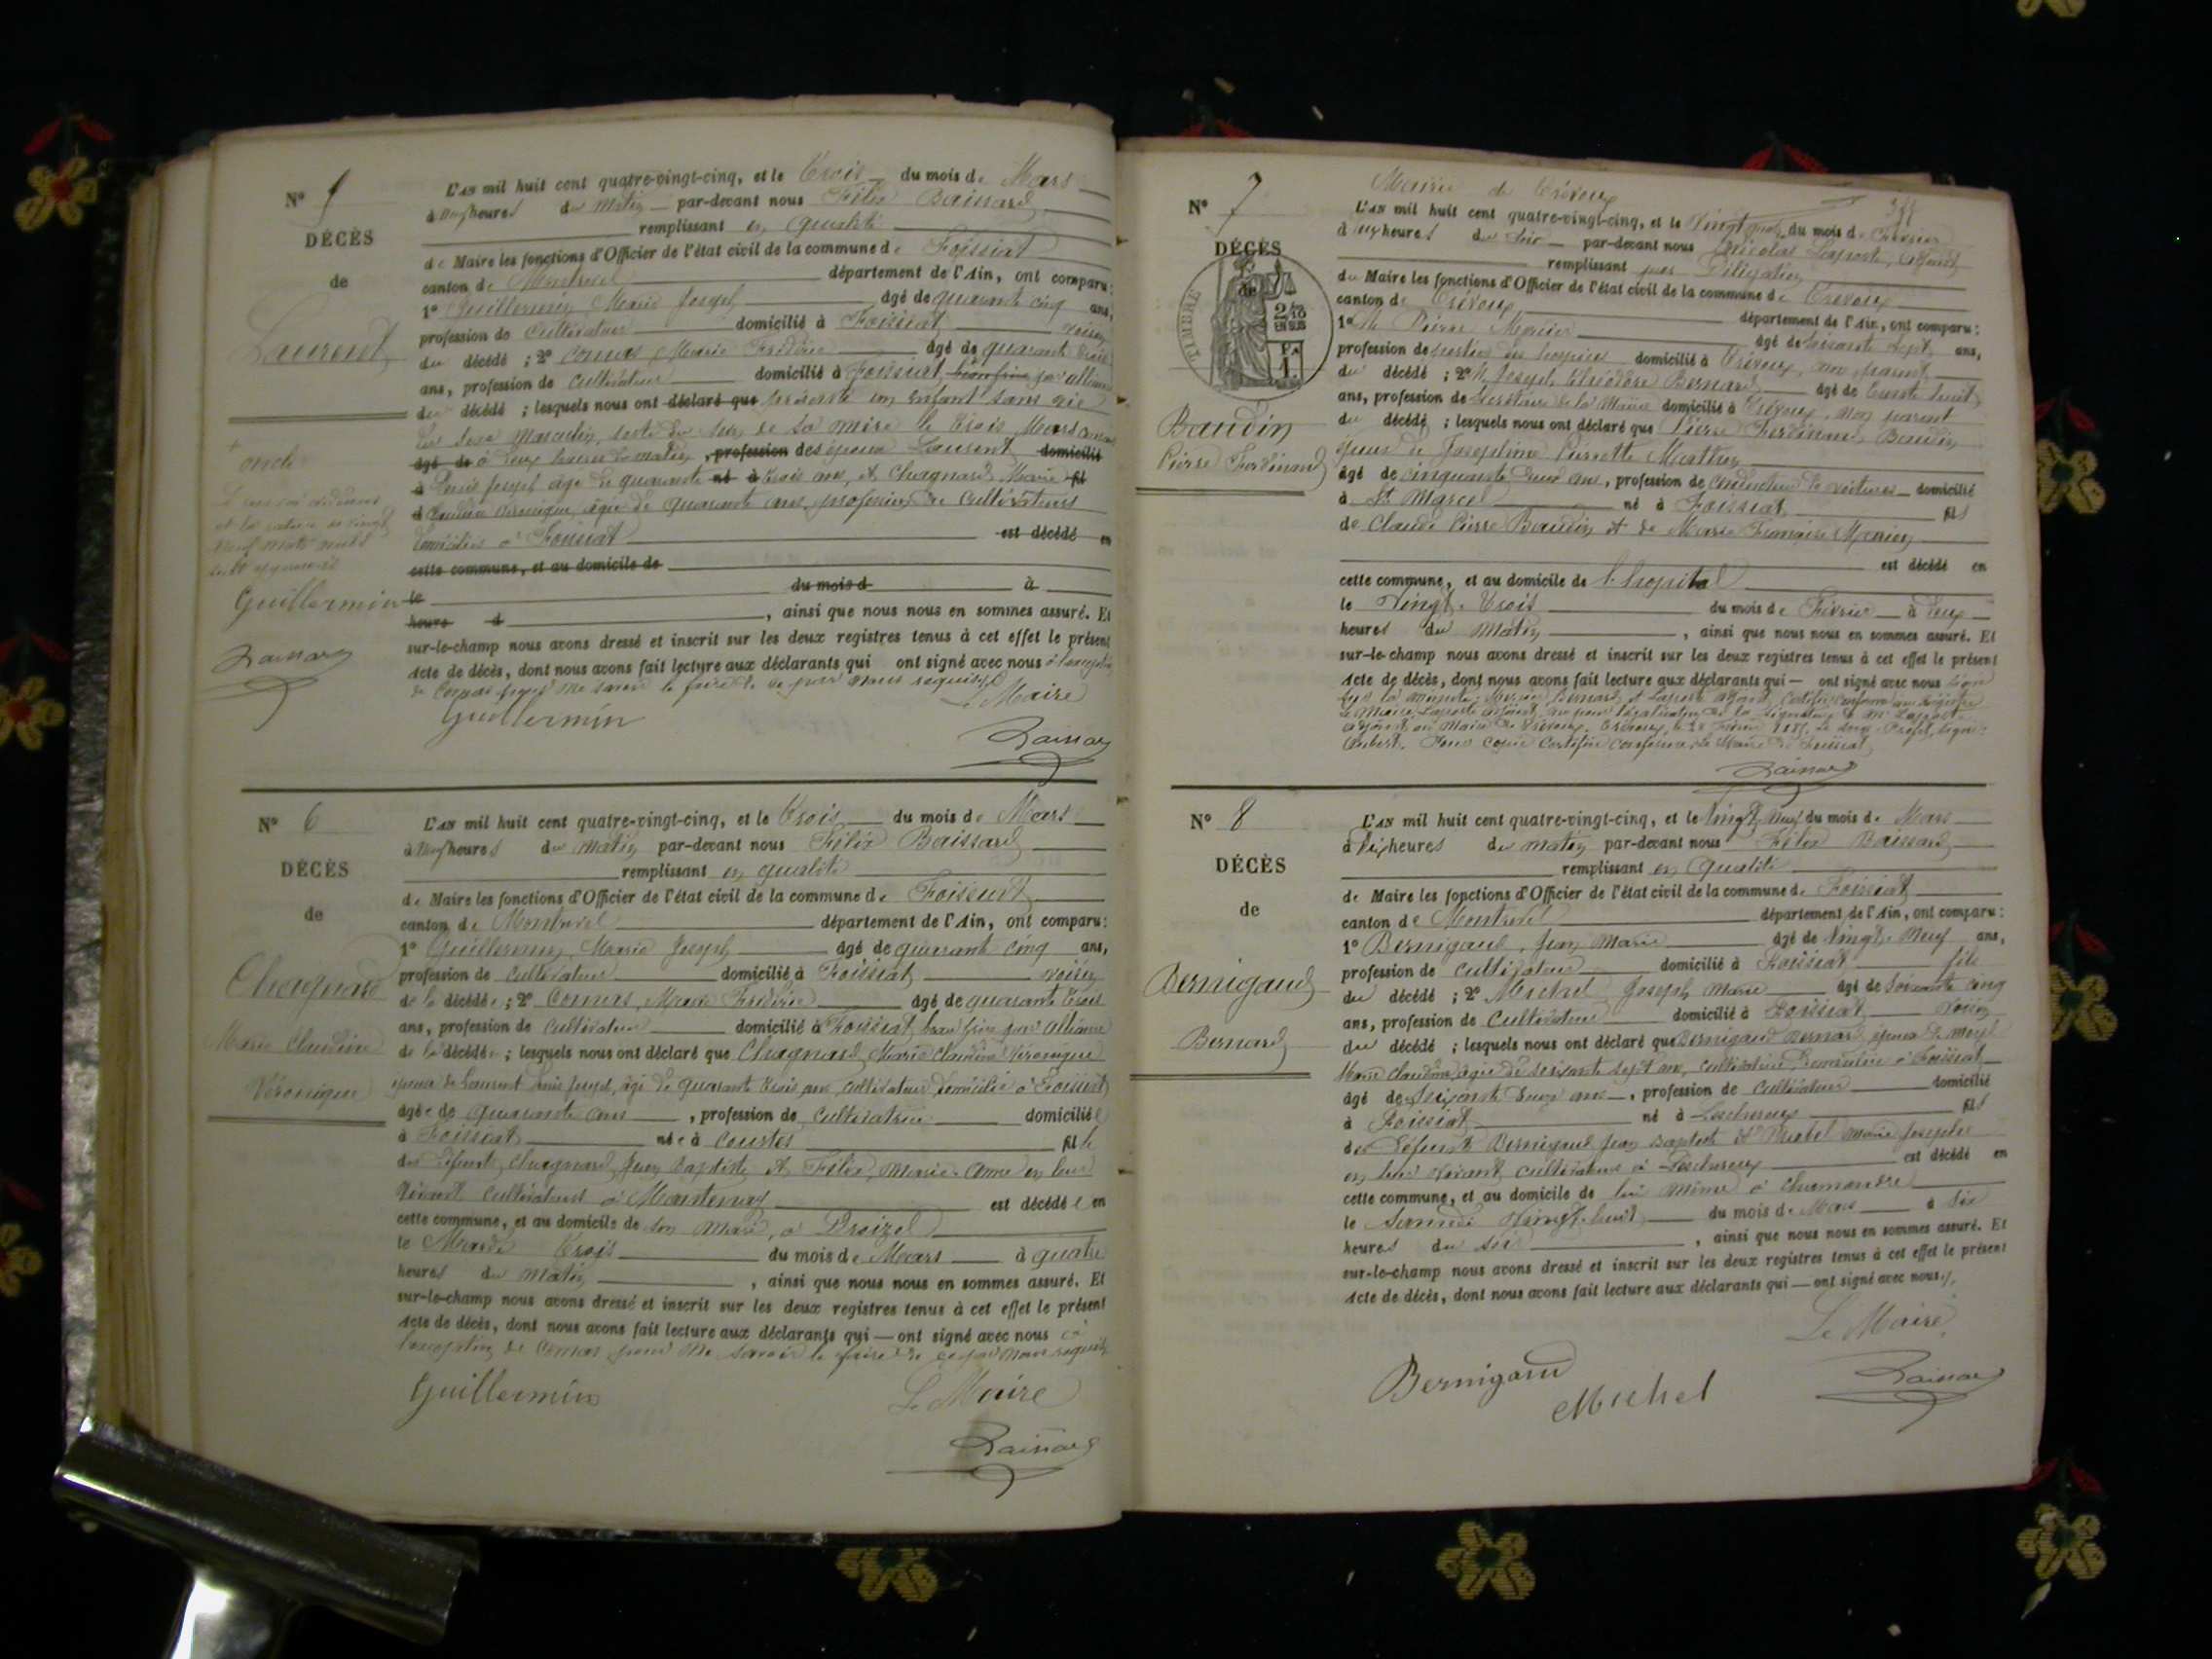 N° 5
DÉCÈS
de
Laurent
L'AN mil huit cent quatre-vingt-cinq, et le Trois du mois de Mars
à neuf heures du matin par-devant nous Félix Baissard
remplissant en qualité
de Maire les fonctions d'Officier de l'état civil de la commune de Foissiat
canton de Montrevel département de l'Ain, ont comparu :
1° Guillermin Marie Joseph âgé de quarante cinq ans,
profession de cultivateur domicilié à Foissiat voisin
du décédé ; 2° Comas Marie Frédéric âgé de quarante trois
ans, profession de cultivateur domicilié à Foissiat par alliance
du décédé ; lesquels nous ont déclaré que présenté un enfant sans vie
du sexe masculin, sorti du sein de sa mère le trois Mars
âgé de à deux heures du matin, profession des époux Laurent domicilié
à Louis Joseph âgé de quarante né à trois ans, et Chagnard Marie fil
d Claudine Véronique, âgée de quarante ans, profession de cultivateurs
domiciliés à Foissiat est décédé en
cette commune, et au domicile de
le du mois d à
heure d , ainsi que nous nous en sommes assuré. Et
sur-le-champ nous avons dressé et inscrit sur les deux registres tenus à cet effet le présent
Acte de décès, dont nous avons fait lecture aux déclarants qui ont signé avec nous à l'exception
de Comas pour ne savoir le faire de ce par nous requis
Le Maire
Guillermin
Baissard
oncle
Guillermin
Baissard
N° 6
DÉCÈS
de
Chagnard
Marie Claudine
Véronique
L'AN mil huit cent quatre-vingt-cinq, et le Trois du mois de Mars
à neuf heures du matin par-devant nous Félix Baissard
remplissant en qualité
de Maire les fonctions d'Officier de l'état civil de la commune de Foissiat
canton de Montrevel département de l'Ain, ont comparu :
1° Guillermin Marie Joseph âgé de quarante cinq ans,
profession de cultivateur domicilié à Foissiat voisin
de la décédée ; 2° Comas Marie Frédéric âgé de quarante trois
ans, profession de cultivateur domicilié à Foissiat beau frère par alliance
de la décédée ; lesquels nous ont déclaré que Chagnard Marie Claudine Véronique
épouse de Laurent Louis Joseph, âgé de quarante trois ans, cultivateur domicilié à Foissiat
âgée de quarante ans, profession de cultivatrice domiciliée
à Foissiat née à Courtes fille
des défunts Chagnard Jean Baptiste et Félix Marie Anne en leur
vivant cultivateurs à Mantenay est décédée en
cette commune, et au domicile de son mari, à
le Mardi trois du mois de Mars à quatre
heures du matin, ainsi que nous nous en sommes assuré. Et
sur-le-champ nous avons dressé et inscrit sur les deux registres tenus à cet effet le présent
Acte de décès, dont nous avons fait lecture aux déclarants qui — ont signé avec nous à
l'exception de Comas pour ne savoir le faire de ce par nous requis
Guillermin
Le Maire
Baissard
Mairie de Trévoux
N° 7
DÉCÈS
de
TIMBRE
Baudin
Pierre Ferdinand
L'AN mil huit cent quatre-vingt-cinq, et le vingt du mois de Février
à heures du soir par-devant nous Nicolas Laporte, adjoint
remplissant par délégation
du Maire les fonctions d'Officier de l'état civil de la commune de Trévoux
canton de Trévoux département de l'Ain, ont comparu :
1° M. Pierre Monier âgé de soixante sept ans,
profession de portier des hospices domicilié à Trévoux, non parent
du décédé ; 2° M. Joseph Théodore Bernard âgé de trente huit
ans, profession de secrétaire de la Mairie domicilié à Trévoux, non parent
du décédé ; lesquels nous ont déclaré que Pierre Ferdinand Baudin
époux de Joséphine Pierrette Mathieu
âgé de cinquante deux ans, profession de conducteur de voitures domicilié
à St Marcel né à Foissiat fils
de Claude Pierre Baudin et de Marie Françoise
est décédé en
cette commune, et au domicile de l'hôpital
le Vingt-trois du mois de Février à deux
heures du matin, ainsi que nous nous en sommes assuré. Et
sur-le-champ nous avons dressé et inscrit sur les deux registres tenus à cet effet le présent
Acte de décès, dont nous avons fait lecture aux déclarants qui — ont signé avec nous
Baissard
N° 8
DÉCÈS
de
Bernigaud
Bernard
L'AN mil huit cent quatre-vingt-cinq, et le Vingt-neuf du mois de Mars
à dix heures du matin par-devant nous Félix Baissard
remplissant en qualité
de Maire les fonctions d'Officier de l'état civil de la commune de Foissiat
canton de Montrevel département de l'Ain, ont comparu :
1° Bernigaud, Jean Marie âgé de Vingt Neuf ans,
profession de cultivateur domicilié à Foissiat fils
du décédé ; 2° Michel Joseph Marie âgé de soixante cinq
ans, profession de cultivateur domicilié à Foissiat voisin
du décédé ; lesquels nous ont déclaré que Bernigaud Bernard, époux de
Marie Claudine, âgée de soixante sept ans, cultivatrice domiciliée à Foissiat
âgé de soixante deux ans, profession de cultivateur domicilié
à Foissiat né à Lescheroux fils
des défunts Bernigaud Jean Baptiste et Marie Josephte
en leur vivant cultivateurs à Lescheroux est décédé en
cette commune, et au domicile de lui même à Chamandre
le Samedi Vingt-huit du mois de Mars à six
heures du soir, ainsi que nous nous en sommes assuré. Et
sur-le-champ nous avons dressé et inscrit sur les deux registres tenus à cet effet le présent
Acte de décès, dont nous avons fait lecture aux déclarants qui — ont signé avec nous.
Le Maire
Bernigaud
Michel
Baissard